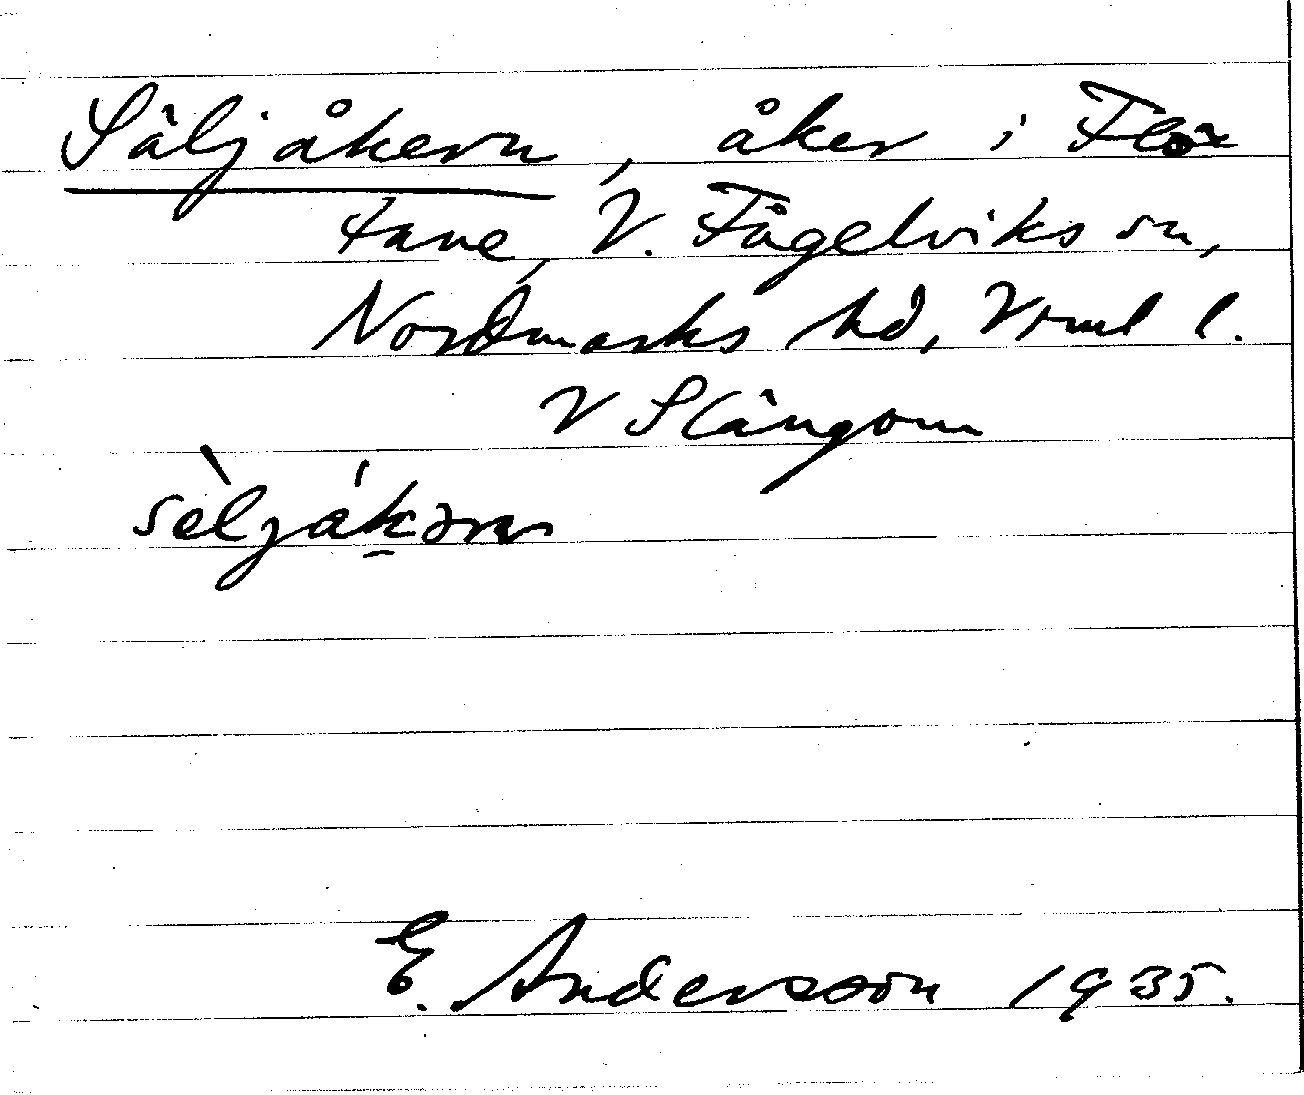 Säljåkern, åker i Flox
tane, V. Fågelviks sn,
Nordmarks hd, Vrml l.
V Slängom
sèljákərn
E. Andersson 1935.